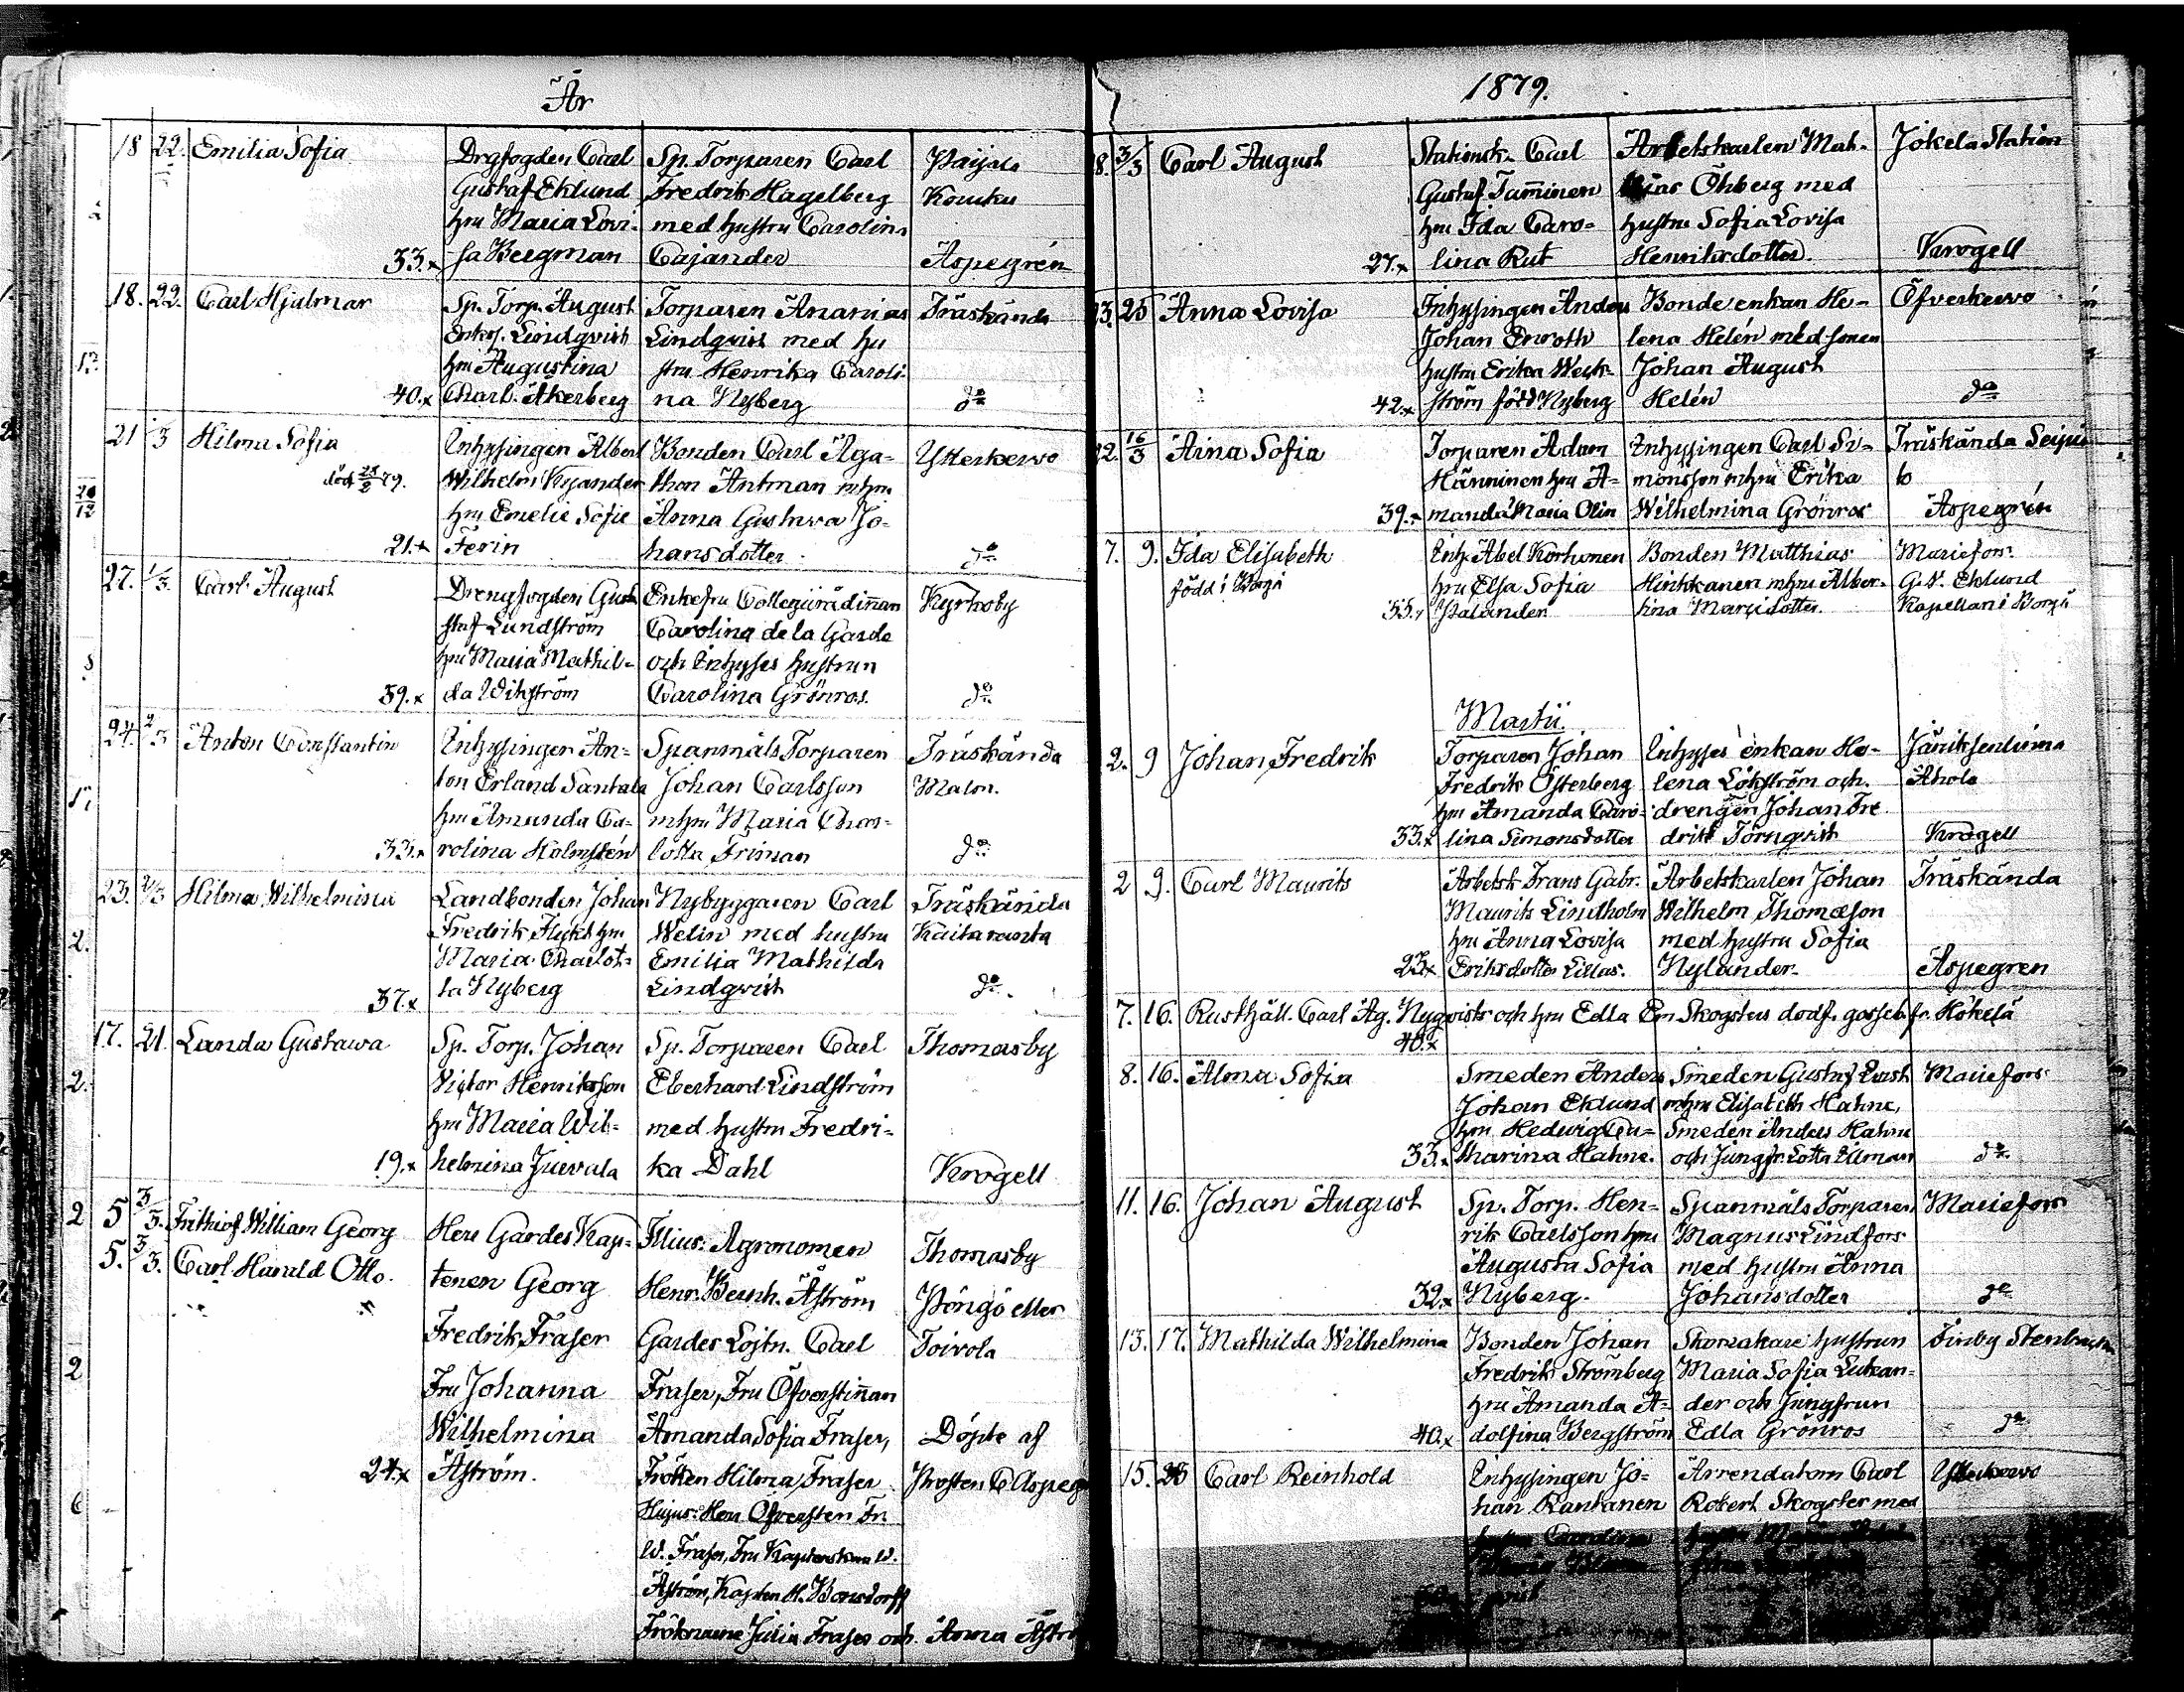 År
18 22. Emilia Sofia
Drgfogden Carl
Gustaf Eklund
hru Maria Lovi-
33.x sa Bergman
Sp. Torparen Carl
Fredrik Hagelberg
med hustru Carolina
Cajander
Aspegrén
18. 22. Carl Hjalmar
Sp. Torp. August
Lindqvist
hru Augustina
40.x Charl. Åkerberg
Torparen Ananias
Lindqvist med hu
stru Henrika Caroli-
na Nyberg
Träskända
do
21 1/3 Hilma Sofia
död 28/8 79.
Inhysingen Albert
Wilhelm Kyander
hru Emelie Sofie
21.x Ferin
Bonden Carl Aga-
thon Antman mhru
Anna Gustava Jo-
hansdotter
Ytterkervo
do
27. 1/3. Carl August
Drengfogden Gu-
staf Lundström
hru Maria Mathil-
39.x da Wikström
Enkefru Collegiirådinnan
Carolina de la Garde
och Inhyses hustrun
Carolina Grönros.
Kyrkoby
do
24. 2/3 Anton Constantin
Inhysingen An-
ton Erland Santala
hru Amanda Ca-
33.x rolina Holmstén
Spanmåls Torparen
Johan Carlsson
mhru Maria Char-
lotta Friman
Träskända
do
23. 2/3 Hilma Wilhelmina
Landbonden Johan
Fredrik Flykt hru
Maria Charlot-
37.x ta Nyberg
Nybyggaren Carl
Welin med hustru
Emilia Mathilda
Lindqvist
Träskända
Kaitaranta
do.
17. 21. Landa Gustava
Sp. Torp. Johan
Victor Henriksson
hru Maria Wil-
19.x helmina Juevala
Sp. Torparen Carl
Eberhard Lindström
med hustru Fredri-
ka Dahl
Thomasby
Krogell
5 3/3. Frithiof William Georg
5. 3/3. Carl Harald Otto.
Herr Gardes Kap-
tenen Georg
Fredrik Fraser
Fru Johanna
Wilhelmina
24.x Åström.
Illius: Agronomen
Henr. Bernh. Åström
Gardes Löjtn. Carl
Fraser, Fru Öfverstinnan
Amanda Sofia Fraser,
Fröken Hilma Fraser
Hujus: Herr Öfversten Fr.
W. Fraser, Fru Kaptenskan W.
Åström, Kapten H. Bonsdorff
Fröknarne Julia Fraser och Anna Åströ
Thomasby
Pöngö eller
Toivola
Döpte af
Prosten C Aspeg
1879.
8. 3/3 Carl August
Stationsk. Carl
Gustaf Tamminen
hru Ida Caro-
27.x lina Rut
Arbetskarlen Mat-
tias Öhberg med
hustru Sofia Lovisa
Henriksdotter.
Jokela Station
Krogell
23. 25 Anna Lovisa
Inhysingen Anders
Johan Enroth
hustru Erika Weck-
42.x ström född Nyberg
Bonde enkan He-
lena Helén med sonen
Johan August
Helén
Öfverkervo
do
22. 16/3 Aina Sofia
Torparen Adam
Hänninen hru A-
39.x manda Maria Olin
Inhysingen Carl Si-
monsson mhru Erika
Wilhelmina Grönros
Träskända
Aspegrén
7. 9. Ida Elisabeth
född i Borgå
Inh. Abel Korhonen
hru Elsa Sofia
33.x Palander
Bonden Matthias
Hinkkanen mhru Alber-
tina Matsdotter.
Mariefors
G. W. Eklund
Kapellan i Borgå
Martii
2. 9 Johan Fredrik
Torparen Johan
Fredrik Österberg
hru Amanda Caro-
33.x lina Simonsdotter
Inhyses enkan He-
lena Lökström och
drengen Johan Fre
drik Törnqvist
Ahola
Krogell
2 9. Carl Maurits
Arbetsk. Frans Gabr.
Maurits Lindholm
hru Anna Lovisa
23.x Eriksdotter Lillas.
Arbetskarlen Johan
Wilhelm Thomæson
med hustru Sofia
Nylander
Träskända
Aspegren
7. 16. Rusthåll. Carl Ag. Nyqvists och hru Edla Em Skogsters dödf. gosseb. fr. Hökelä
40.x
8. 16. Alma Sofia
Smeden Anders
Johan Eklund
hru Hedwig Ca-
33.x tharina Hahne.
Smeden Gustaf Qvist
mhru Elisabeth Hahne,
Smeden Anders Hahne
och Jungfr. Lotta Ullman
Mariefors
do
11. 16. Johan August
Sp. Torp. Hen-
rik Carlsson hru
Augusta Sofia
32.x Nyberg.
Spanmåls Torparen
Magnus Lindfors
med hustru Anna
Johansdotter
Mariefors
do
13. 17. Mathilda Wilhelmina
Bonden Johan
Fredrik Strömberg
hru Amanda A-
40.x dolfina Bergström
Skomakare hustrun
Maria Sofia Lukan-
der och Jungfrun
Edla Grönros
Finby
do
15. 23 Carl Reinhold
Inhysingen Jo-
han Rantanen
Arrendatorn Carl
Robert Skogster med
Ytterkervo